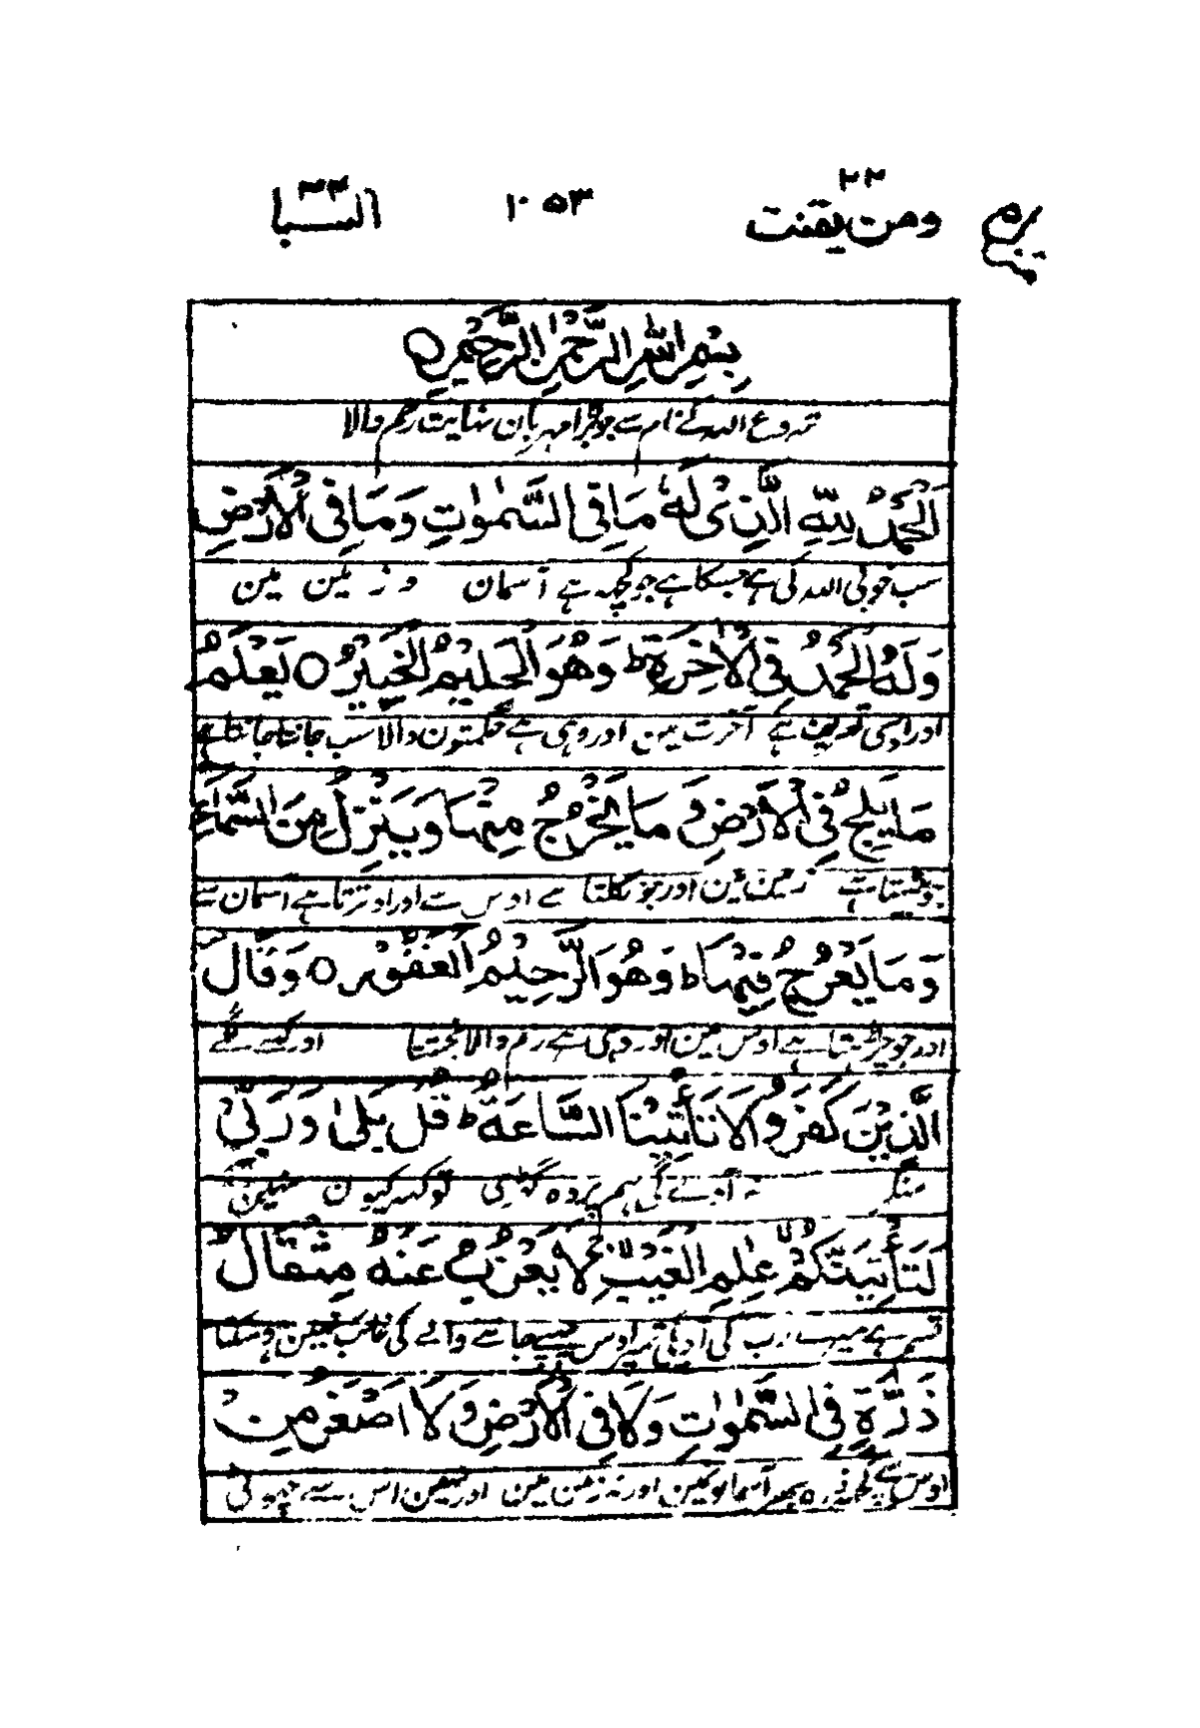 ۲۲
ومن یقنت ۱۰۵۳ السبا ۳۴
بِسْمِ اللهِ الرَّحْمٰنِ الرَّحِيْمِ ○
شروع اللہ کے نام سے جو بڑا مہربان نہایت رحم والا
اَلْحَمْدُ لِلّٰهِ الَّذِیْ لَهٗ مَا فِی السَّمٰوٰتِ وَمَا فِی الْاَرْضِ
سب خوبی اللہ کی ہے جسکا ہے جو کچھ ہے آسمان و زمین مین
وَلَهُ الْحَمْدُ فِی الْاٰخِرَةِ ط وَهُوَ الْحَکِیْمُ الْخَبِیْرُ ○ یَعْلَمُ
اور اوسی کی تعریف ہے آخرت مین اور وہی ہے حکمتون والا سب جانتا جانتا ہے
مَا یَلِجُ فِی الْاَرْضِ وَ مَا یَخْرُجُ مِنْهَا وَ یَنْزِلُ مِنَ السَّمَآءِ
جو پیستا ہے زمین مین اور جو نکلتا ہے اوس سے اور اوترتا ہے آسمان سے
وَمَا یَعْرُجُ فِیْهَا ط وَهُوَ الرَّحِیْمُ الْغَفُوْرُ ○ وَ قَالَ
اور جو چڑھتا ہے اوس مین اور وہی ہے رحم والا بخشتا اور کہنے لگے
الَّذِیْنَ کَفَرُوْا لَا تَاْتِیْنَا السَّاعَةُ ط قُلْ بَلٰی وَ رَبِّیْ
منکر نہ آوے گی ہم پر وہ گھڑی تو کہہ کیون نہین
لَتَاْتِیَنَّکُمْ عٰلِمِ الْغَیْبِ لَا یَعْزُبُ عَنْهُ مِثْقَالُ
قسم ہے میرے رب کی آویگی تم پر اوس چھپے جاننے والے کی غائب نہین ہو سکتا
ذَرَّةٍ فِی السَّمٰوٰتِ وَلَا فِی الْاَرْضِ وَ لَا اَصْغَرُ مِنْ
اوس سے کچھ ذرہ بھر آسمانون مین اور نہ زمین مین اور نہین اس سے چھوٹی